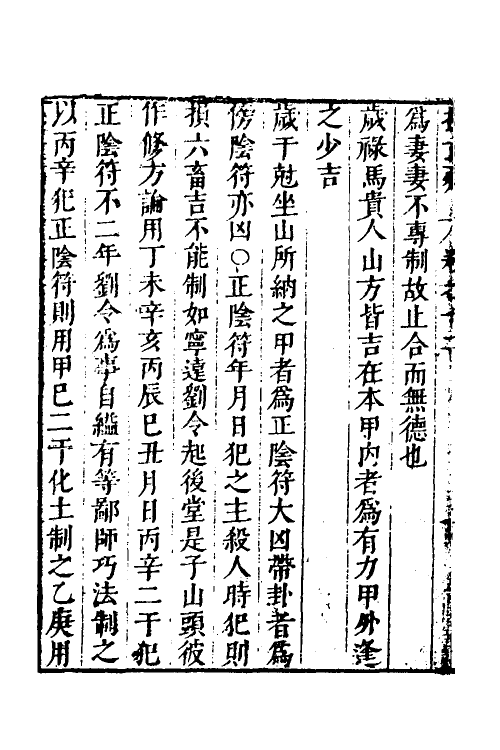 爲妻妻不專制故止合而無德也
歲祿馬貴人山方皆吉在本甲內者爲有力甲外逢
之少吉
歲干尅坐山所納之甲者爲正陰符大凶帶卦者爲
傍陰符亦凶○正陰符年月日犯之主殺人時犯則
損六畜吉不能制如寧遠劉令起後堂是子山頭彼
作修方論用丁未辛亥丙辰巳丑月日丙辛二干犯
正陰符不二年劉令爲事自縊有等鄙師巧法制之
以丙辛犯正陰符則用甲巳二干化土制之乙庚用